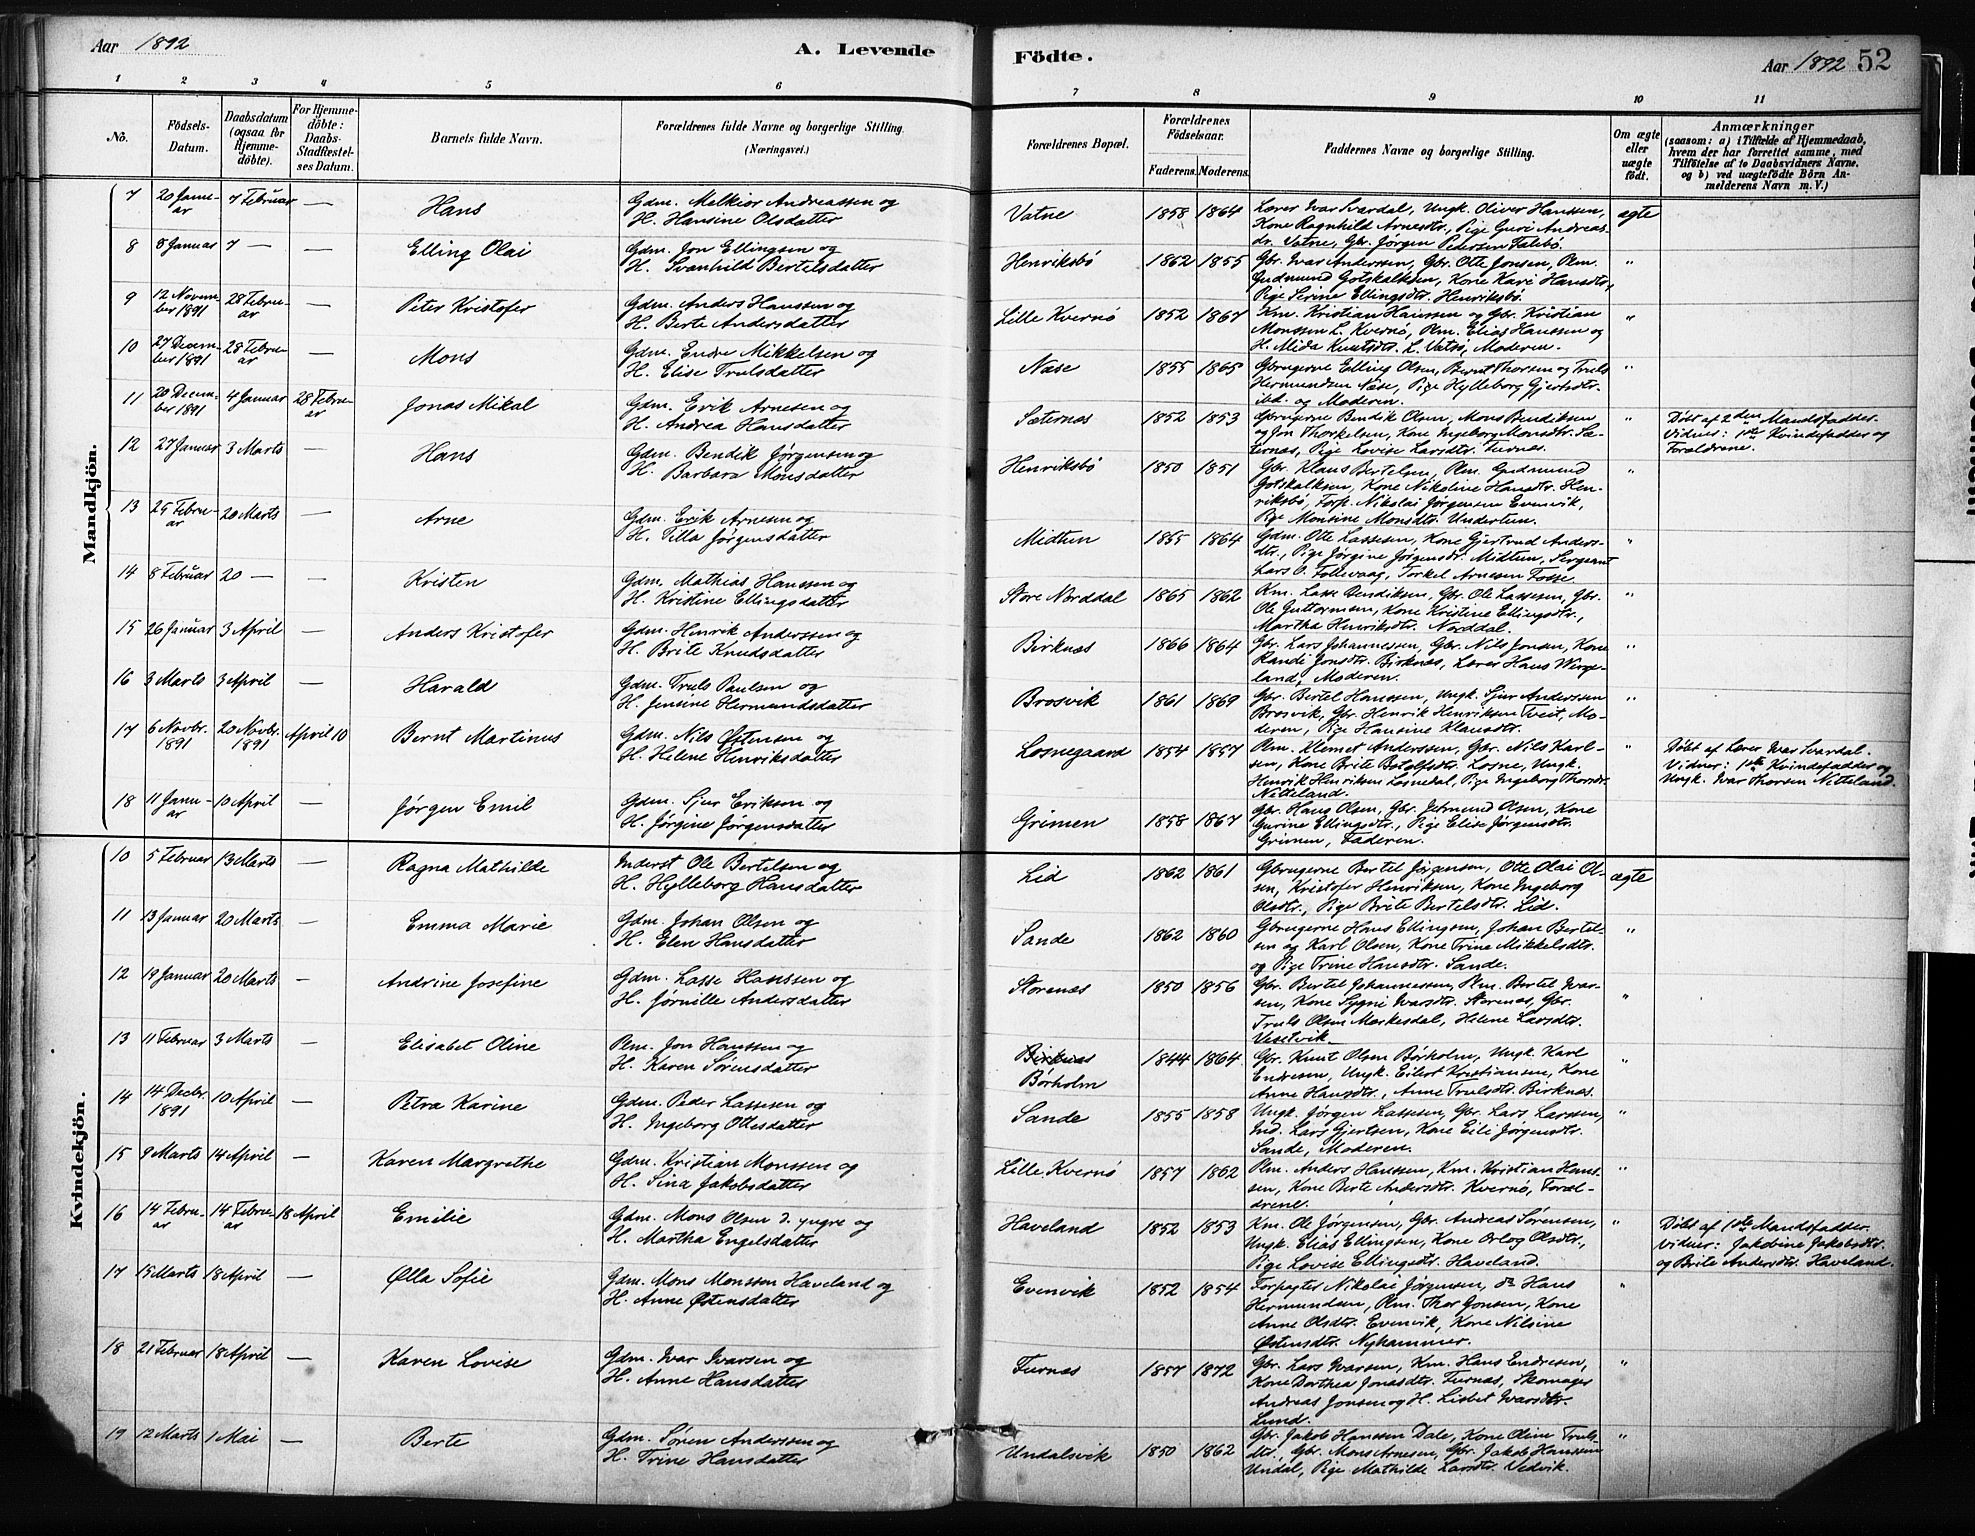 Aar 1892
A. Levende
Födte.
Aar 1892 52
1 2 3 4 5 6 7 8 9 10 11
No.
Födsels-Datum.
Daabsdatum (ogsaa for Hjemmedöbte).
For Hjemmedöbte: Daabs-Stadfæstelses Datum.
Barnets fulde Navn.
Forældrenes fulde Navne og borgerlige Stilling.
(Næringsvei.)
Forældrenes Bopæl.
Forældrenes Födselsaar.
Faderens. Moderens.
Faddernes Navne og borgerlige Stilling.
Om ægte eller uægte födt.
Anmærkninger
(saasom: a) i Tilfælde af Hjemmedaab,
hvem der har forrettet samme, med
Tilföielse af to Daabsvidners Navne,
og b) ved uægtefödte Börn An-
melderens Navn m. V.)
Mandkjön.
7 20 Janu-ar 7 Februar — Hans Gdm. Melkior Andreassen og
H. Hansine Olsdatter
Vatne 1858 1864 Lærer Ivar Svardal, Ungk. Oliver Hanssen,
Kone Ragnhild Arnesdtr., Pige Guri Andreas-
dr. Vatne, Gbr. Jørgen Pedersen
ægte
8 8 Januar 7 — — Elling Olai Gdm. Jon Ellingsen og
H. Svanhild Bertelsdatter
Henriksbö 1862 1855 Gbr. Ivar Andersen, Gbr. Otte Jonsen, Plm.
Gudmund Gotskalksen, Kone Kari Hansdtr,
Pige Serine Ellingsdtr. Henriksbö.
"
9 12 Novem-ber 1891 28 Febru-ar — Peter Kristofer Gdm. Anders Hanssen og
H. Berte Andersdatter
Lille Kvernö 1852 1867 Km. Kristian Hanssen og Gbr. Kristian
Monssen L. Kvernö, Plm. Elias Hanssen og
H. Mida Knutsdtr. L. Vatsö, Moderen.
"
10 27 Decem-ber 1891 28 Febru-ar — Mons Gdm. Endre Mikkelsen og
H. Elise Trulsdatter
Näse 1855 1865 Gbrugerne Elling Olsen, Bernt Thorsen og Truls
Hermundsen Näse, Pige Hylleborg Gjertsdtr.
ibd. og Moderen.
"
11 20 Decem-ber 1891 4 Januar 28 Febru-ar Jonas Mikal Gdm. Erik Arnesen og
H. Andrea Hansdatter
Sæternæs 1852 1853 Gbrugerne Bendik Olsen, Mons Bendiksen
og Jon Thorkelsen, Kone Ingeborg Monsdtr. Sæ-
ternæs, Pige Lovise Larsdtr. Furnæs.
"
Döbt af 2den Mandsfadder.
Vidner: 1ste Kvindefadder og
Forældrene.
12 27 Januar 3 Marts — Hans Gdm. Bendik Jørgensen og
H. Barbara Monsdatter
Henriksbö 1850 1851 Gbr. Klaus Bertelsen, Plm. Gudmund
Gotskalksen, Kone Nikoline Hansdtr. Hen-
riksbö, Forp. Nikolai Jørgensen Evenvik,
Pige Monsine Monsdtr. Undertun.
"
13 25 Febru-ar 20 Marts — Arne Gdm. Erik Arnesen og
H. Titta Jørgensdatter
Midtun 1855 1864 Gdm. Otte Lassesen, Kone Gjertrud Anders-
dtr., Pige Jørgine Jørgensdr. Midtun, Sergeant
Lars O. Tollevaag, Torkel Arnesen Fosse.
"
14 8 Februar 20 — — Kristen Gdm. Mathias Hanssen og
H. Kristine Ellingsdatter
Store Norddal 1865 1862 Km. Lasse Bendiksen, Gbr. Ole Lassesen, Gbr.
Ole Guttormsen, Kone Kristine Ellingsdtr.,
Martha Henriksdtr. Norddal.
"
15 26 Januar 3 April — Anders Kristofer Gdm. Henrik Anderssen og
H. Brite Knudsdatter
Birknæs 1866 1864 Gbr. Lars Johannessen, Gbr. Nils Jonsen, Kone
Randi Jonsdtr. Birknæs, Lærer Hans Werge-
land, Moderen.
"
16 3 Marts 3 April — Harald Gdm. Truls Paulsen og
H. Jensine Hermundsdatter
Brosvik 1861 1869 Gbr. Bertel Hanssen, Ungk. Sjur Anderssen
Brosvik, Gbr. Henrik Henriksen Tveit, Mo-
deren, Pige Hansine Klausdtr.
"
17 6 Novbr. 1891 20 Novbr. 1891 April 10 Bernt Martinus Gdm. Nils Østensen og
H. Helene Henriksdatter
Losnegaard 1854 1857 Plm. Klemet Anderssen, Gbr. Nils Karl-
sen, Kone Brite Botolfsdtr. Losne, Ungk.
Henrik Henriksen Losnedal, Pige Ingeborg Thorsdr.
Nitteland.
"
Döbt af Lærer Ivar Svardal.
Vidner: 1ste Kvindefadder og
Ungk. Ivar Thorsen Nitteland.
18 11 Janu-ar 10 April — Jørgen Emil Gdm. Sjur Eriksen og
H. Jørgine Jørgensdatter
Grimen 1858 1867 Gbr. Hans Olsen, Gbr. Jetmund Olsen, Kone
Gurine Ellingsdtr., Pige Elise Jørgensdtr.
Grimen, Faderen.
Kvindekjön.
10 5 Februar 13 Marts — Ragna Mathilde Inderst Ole Bertelsen og
H. Hylleborg Hansdatter
Lid 1862 1861 Gbrugerne Bertel Jørgensen, Otte Olai Ol-
sen, Kristofer Henriksen, Kone Ingeborg
Olsdtr., Pige Brite Bertelsdtr. Lid.
ægte
11 13 Januar 20 Marts — Emma Marie Gdm. Johan Olsen og
H. Elen Hansdatter
Sande 1862 1860 Gbrugerne Hans Ellingsen, Johan Bertel-
sen og Karl Olsen, Kone Trine Mikkelsdtr.
og Pige Trine Hansdtr. Sande.
"
12 19 Januar 20 Marts — Andrine Josefine Gdm. Lasse Hanssen og
H. Jørnille Andersdatter
Storenæs 1850 1856 Gbr. Bertel Johannessen, Plm. Bertel Ivar-
sen, Kone Sygni Ivarsdtr. Storenæs, Gbr.
Truls Olsen Mærkesdal, Helene Larsdtr.
"
13 11 Februar 3 Marts — Elisabet Oline Plm. Jon Hanssen og
H. Karen Sørensdatter
Birknæs
Börholm 1844 1864 Gbr. Knut Olsen Börholm, Ungk. Karl
Endresen, Ungk. Eilert Kristiansen, Kone
Anne Hansdtr., Anne Trulsdtr. Birknæs.
"
14 14 Decbr. 1891 10 April — Petra Karine Gdm. Peder Lassesen og
H. Ingeborg Ottesdatter
Sande 1855 1858 Ungk. Jörgen Lassesen, Gbr. Lars Larssen,
Ind. Lars Gjertsen, Kone Eili Jørgensdtr.
Sande, Moderen.
"
15 9 Marts 14 April — Karen Margrethe Gdm. Kristian Monssen og
H. Sina Jakobsdatter
Lille Kvernö 1857 1862 Plm. Anders Hanssen, Km. Kristian Hans-
sen, Kone Berte Andersdtr. Kvernö, Foræl-
drene.
"
16 14 Febru-ar 14 Febru-ar 18 April Emilie Gdm. Mons Olsen d. yngre og
H. Martha Engelsdatter
Haveland 1852 1853 Km. Ole Jørgensen, Gbr. Andreas Sørensen,
Ungk. Elias Ellingsen, Kone Orlog Olsdtr.,
Pige Lovise Ellingsdtr. Haveland.
"
Döbt af 1ste Mandsfadder.
Vidner: Jakobine Jakobsdtr.
og Brite Andersdtr. Haveland.
17 15 Marts 18 April — Ølla Sofie Gdm. Mons Monsson Haveland og
H. Anne Østensdatter
Evenvik 1852 1854 Forpagter Nikolai Jørgensen, do Hans
Hermundsen, Plm. Thor Jonsen, Kone
Anne Olsdtr. Evenvik, Kone Nilsine
Østensdtr. Nyhammer.
"
18 21 Februar 18 April — Karen Lovise Gdm. Ivar Ivarsen og
H. Anne Hansdatter
Furnæs 1857 1872 Gbr. Lars Ivarsen, Km. Hans Endresen,
Kone Dorthea Jonasdtr. Furnæs, Skomager
Andreas Jonsen og H. Lisbet Ivarsdtr.
Lund.
"
19 12 Marts 1 Mai — Berte Gdm. Søren Anderssen og
H. Trine Hansdatter
Undalsvik 1850 1862 Gbr. Jakob Hanssen Dale, Kone Oline Truls-
dtr., Gbr. Mons Arnesen, Gbr. Jakob Hanssen
Undal, Pige Mathilde Larsdtr. Vedvik.
"